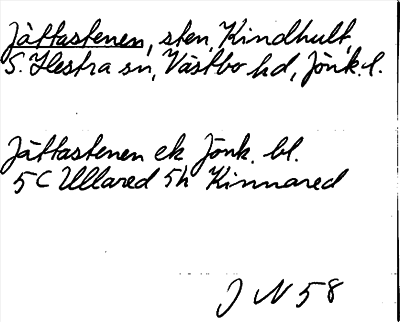 Jättastenen, sten, Kindhult,
S. Hestra sn, Västbo hd, Jönk. l.
Jättastenen ek Jönk. bl.
5C Ullared 5h Kinnared
J N 58